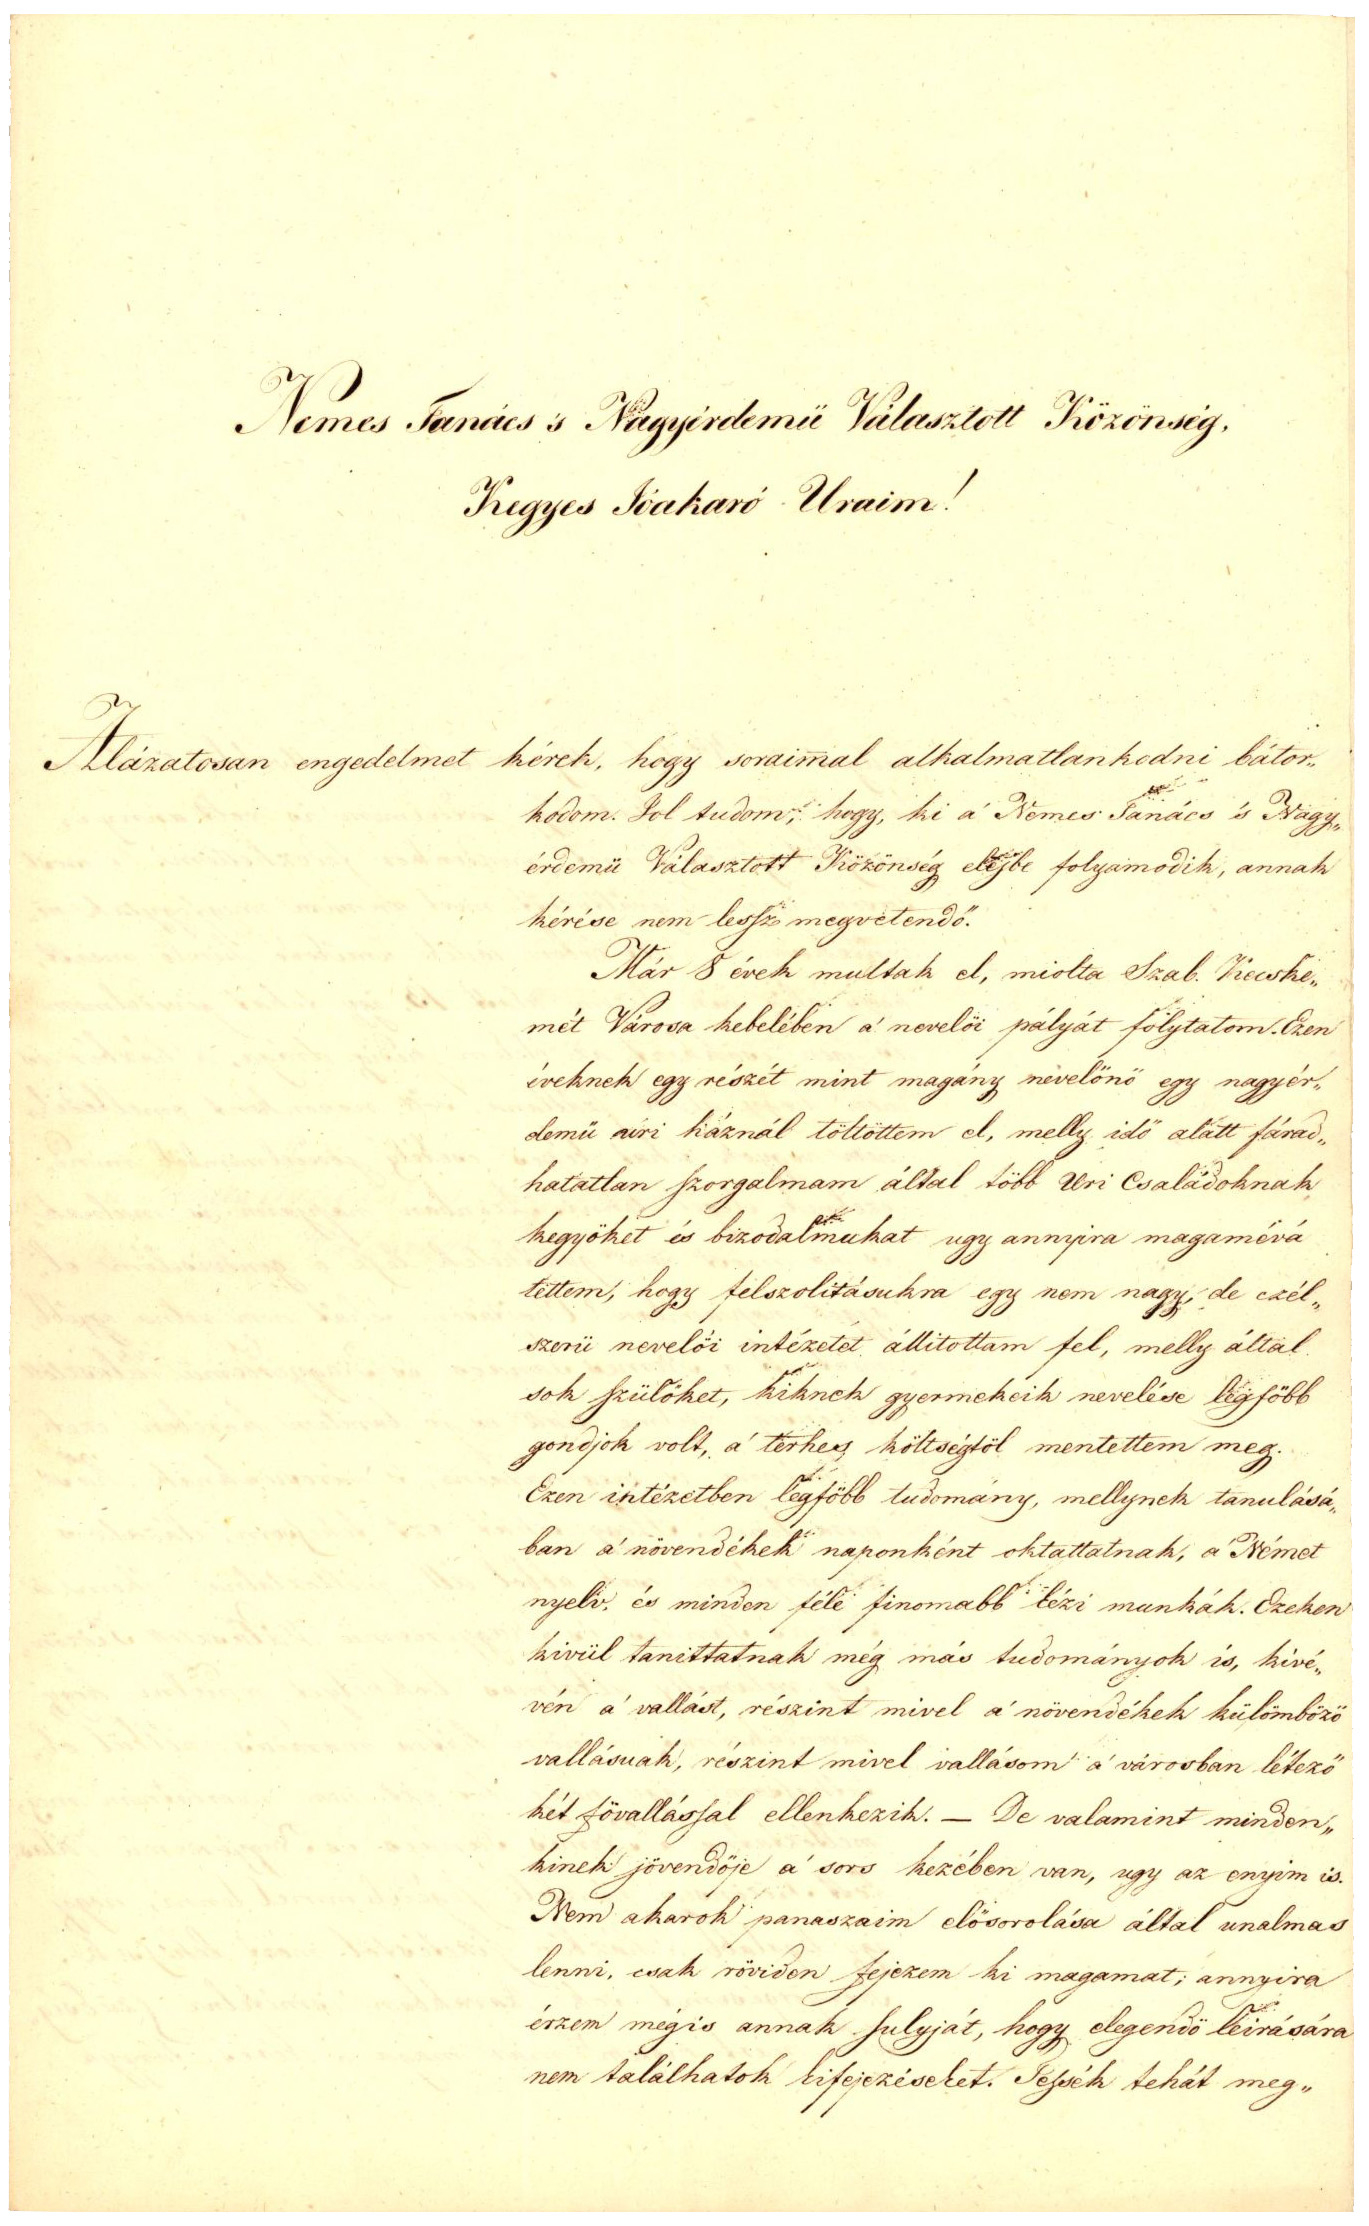 Nemes Tanács 's Nagyérdemü Választott Közönség,
Kegyes Jóakaró Uraim!
Alázatosan engedelmet kérek, hogy soraim̄al alkalmatlankodni bátor„
kodom. Jol tudom, hogy, ki a' Nemes Tanács 's Nagy„
érdemü Választott Közönség elejbe folyamodik, annak
kérése nem lessz megvetendő.
Már 8 évek multak el, miolta Szab. Kecske„
mét Városa kebelében a' nevelői pályát folytatom. Ezen
éveknek egy részét mint magány nevelőnő egy nagyér„
demü úri háznál töltöttem el, melly idő alatt fárad„
hatatlan szorgalmam által több Uri Családoknak
kegyöket és bizodalmukat ugy annyira magamévá
tettem, hogy felszolitásukra egy nem nagy, de czél„
szerü nevelői intézetet állitottam fel, melly által
sok szülőket, kiknek gyermekeik nevelése legföbb
gondjok volt, a' terhes költségtöl mentettem meg.
Ezen intézetben legföbb tudomány, mellynek tanulásá„
ban a' növendékek naponként oktattatnak, a' Német
nyelv, és minden féle finomabb kézi munkák. Ezeken
kivül tanittatnak még más tudományok is, kivé„
vén a' vallást, részint mivel a' növendékek külömböző
vallásuak, részint mivel vallásom a' városban létező
két fövallással ellenkezik. — De valamint minden„
kinek jövendöje a' sors kezében van, ugy az enyim is.
Nem akarok panaszaim elösorolása által unalmas
lenni, csak röviden fejezem ki magamat; annyira
érzem mégis annak sulyját, hogy elegendö leirására
nem találhatok kifejezéseket. Tessék tehát meg„